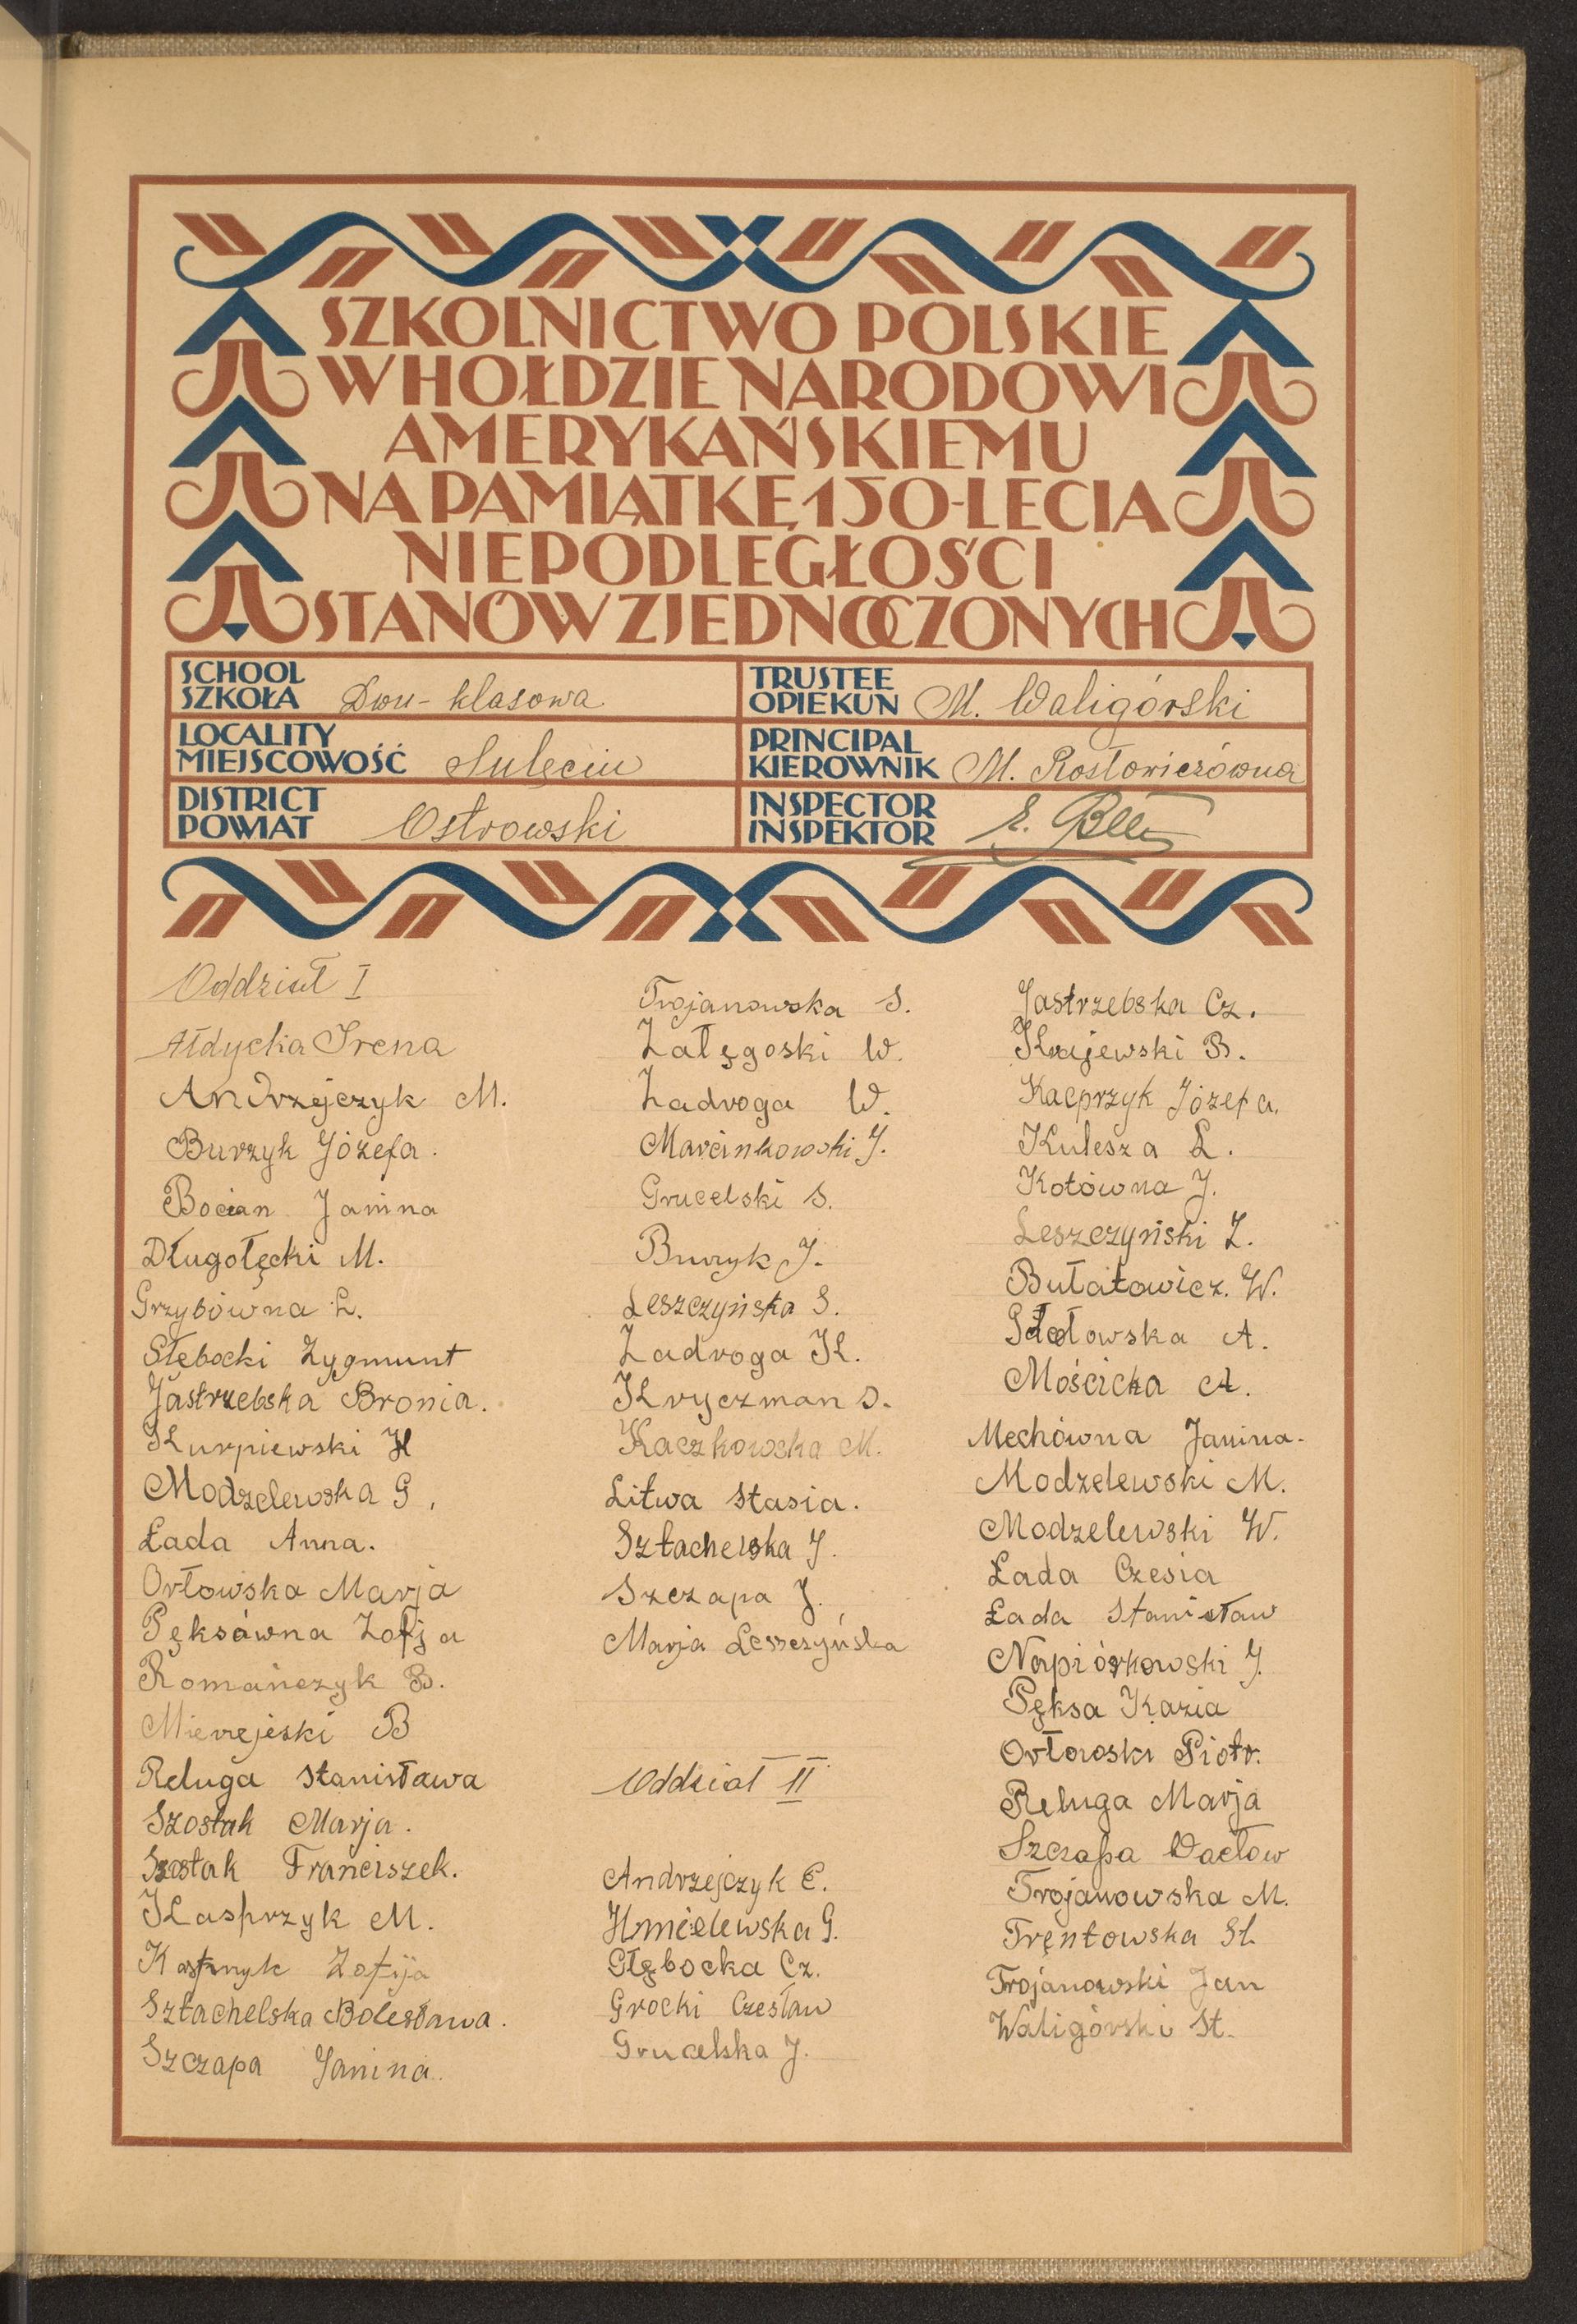 SZKOLNICTWO POLSKIE
W HOŁDZIE NARODOWI
AMERYKAŃSKIEMU
NA PAMIĄTKĘ 150-LECIA
NIEPODLEGŁOŚCI
STANÓW ZJEDNOCZONYCH
SCHOOL
SZKOŁA Dwu-klasowa
TRUSTEE
OPIEKUN M. Waligórski
LOCALITY
MIEJSCOWOŚĆ Sulęcin
PRINCIPAL
KIEROWNIK M.
DISTRICT
POWIAT Ostrowski
INSPECTOR
INSPEKTOR
Oddział I
Ałdycka Irena
Andrzejczyk M.
Burzyk Józefa.
Bocian Janina
Długołęcki M.
Grzybówna L.
Głębocki Zygmunt
Jastrzebska Bronia.
Kurpiewski H
Modzelewska G.
Łada Anna.
Orłowska Marja
Pęksówna Zofja
Romańczyk B.
B
Reluga Stanisława
Szostak Marja.
Szostak Franciszek.
Kasprzyk M.
Zofija
Sztachelska Bolesława.
Szczapa Janina.
Trojanowska S.
Załęgoski W.
Zadroga W.
Marcinkowski J.
Grucelski S.
Buryk J.
Leszczyńska S.
Zadroga K.
Kryczman S.
Kaczkowska M.
Litwa Stasia.
Sztachelska J.
Szczapa J.
Marja Leszczyńska
Oddział II
Andrzejczyk E.
Hmielewska G.
Głębocka Cz.
Grocki Czesław
Grucelska J.
Jastrzebska Cz.
Krajewski B.
Kacprzyk Józefa.
Kulesza L.
Kotówna J.
Leszczyński Z.
Bułatowicz. W.
A.
Mościcka A.
Mechówna Janina.
Modzelewski M.
Modzelewski W.
Łada Czesia
Łada Stanisław
Napiórkowski J.
Pęksa Kazia
Orłowski Piotr.
Reluga Marja
Szczapa Wacław
Trojanowska M.
Trentowska St.
Trojanowski Jan
Waligórski St.